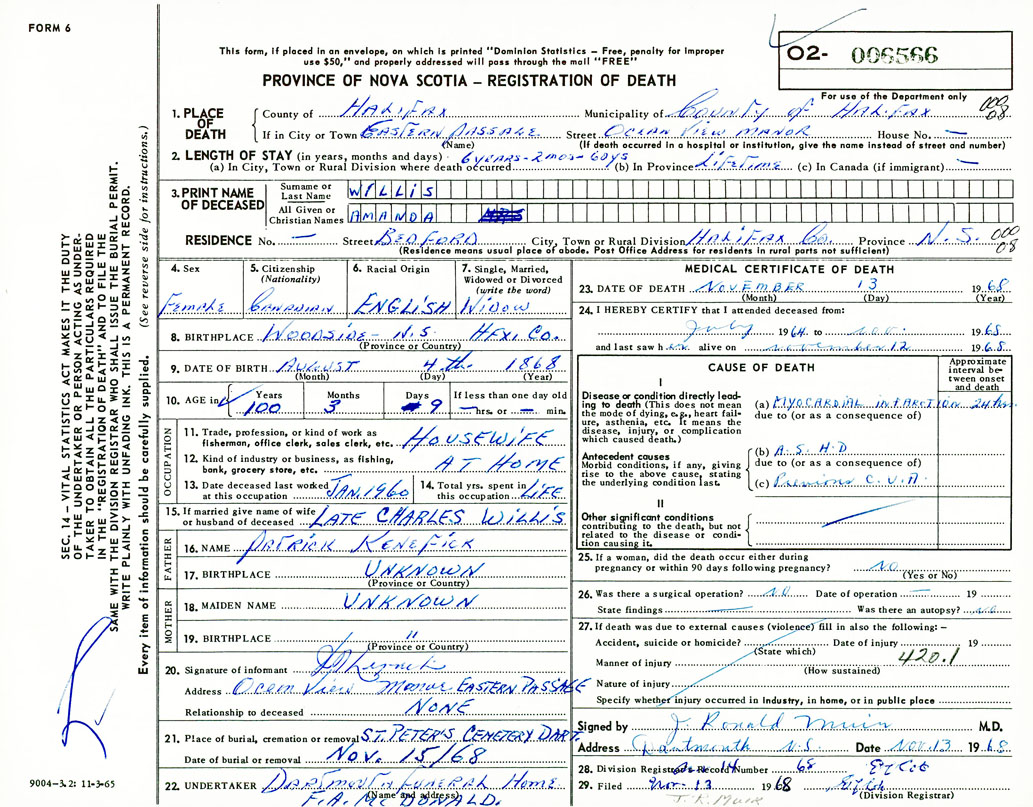 FORM 6
This form, if placed in an envelope, on which is printed "Dominion Statistics – Free, penalty for improper
use $50," and properly addressed will pass through the mail "FREE"
O2- 006566
PROVINCE OF NOVA SCOTIA – REGISTRATION OF DEATH
For use of the Department only
1. PLACE OF DEATH
County of HALIFAX Municipality of COUNTY OF HALIFAX 000 08
If in City or Town EASTERN PASSAGE Street OCEAN VIEW MANOR House No. —
(Name) (If death occurred in a hospital or institution, give the name instead of street and number)
2. LENGTH OF STAY (in years, months and days) 6 YEARS-2 MOS-6 DYS
(a) In City, Town or Rural Division where death occurred (b) In Province LIFETIME (c) In Canada (if immigrant) —
3. PRINT NAME OF DECEASED
Surname or Last Name WILLIS
All Given or Christian Names AMANDA
RESIDENCE No. — Street BEDFORD City, Town or Rural Division HALIFAX Co. Province N.S. 000 08
(Residence means usual place of abode. Post Office Address for residents in rural parts not sufficient)
4. Sex 5. Citizenship (Nationality) 6. Racial Origin 7. Single, Married, Widowed or Divorced (write the word)
Female Canadian ENGLISH WIDOW
8. BIRTHPLACE WOODSIDE - N.S. HFX. CO.
(Province or Country)
9. DATE OF BIRTH AUGUST 4th 1868
(Month) (Day) (Year)
10. AGE in Years Months Days If less than one day old
100 3 9 —hrs. or — min.
OCCUPATION
11. Trade, profession, or kind of work as fisherman, office clerk, sales clerk, etc. HOUSEWIFE
12. Kind of industry or business, as fishing, bank, grocery store, etc. AT HOME
13. Date deceased last worked at this occupation JAN. 1960 14. Total yrs. spent in this occupation LIFE
15. If married give name of wife or husband of deceased LATE CHARLES WILLIS
FATHER
16. NAME PATRICK KENEFICK
17. BIRTHPLACE UNKNOWN
(Province or Country)
MOTHER
18. MAIDEN NAME UNKNOWN
19. BIRTHPLACE "
(Province or Country)
20. Signature of informant
Address Ocean View Manor EASTERN PASSAGE
Relationship to deceased NONE
21. Place of burial, cremation or removal ST. PETER'S CEMETERY DART.
Date of burial or removal NOV. 15/68
22. UNDERTAKER DARTMOUTH FUNERAL HOME
(Name and address)
F.A. McDONALD.
MEDICAL CERTIFICATE OF DEATH
23. DATE OF DEATH NOVEMBER 13 1968
(Month) (Day) (Year)
24. I HEREBY CERTIFY that I attended deceased from:
July 1964 to nov. 1968
and last saw her alive on november 12 1968
CAUSE OF DEATH
Approximate interval between onset and death
I
Disease or condition directly leading to death (This does not mean the mode of dying, e.g., heart failure, asthenia, etc. It means the disease, injury, or complication which caused death.)
(a) MYOCARDIAL INFARCTION 24 hrs
due to (or as a consequence of)
Antecedent causes
Morbid conditions, if any, giving rise to the above cause, stating the underlying condition last.
(b) A.S.H.D
due to (or as a consequence of)
(c) Previous C.V.A.
II
Other significant conditions contributing to the death, but not related to the disease or condition causing it.
25. If a woman, did the death occur either during pregnancy or within 90 days following pregnancy? NO
(Yes or No)
26. Was there a surgical operation? NO Date of operation — 19
State findings Was there an autopsy? NO
27. If death was due to external causes (violence) fill in also the following: –
Accident, suicide or homicide? Date of injury 19
(State which)
Manner of injury 420.1
(How sustained)
Nature of injury
Specify whether injury occurred in Industry, in home, or in public place
Signed by J. Ronald Muir M.D.
Address Dartmouth N.S. Date NOV. 13 1968
28. Division Registrar's Record Number 68
29. Filed Nov. 13 1968
(Division Registrar)
J. R. Muir
SEC. 14 – VITAL STATISTICS ACT MAKES IT THE DUTY
OF THE UNDERTAKER OR PERSON ACTING AS UNDER-
TAKER TO OBTAIN ALL THE PARTICULARS REQUIRED
IN THE "REGISTRATION OF DEATH" AND TO FILE THE
SAME WITH THE DIVISION REGISTRAR WHO SHALL ISSUE THE BURIAL PERMIT.
WRITE PLAINLY WITH UNFADING INK. THIS IS A PERMANENT RECORD.
Every item of information should be carefully supplied. (See reverse side for instructions.)
9004-3.2: 11-3-65